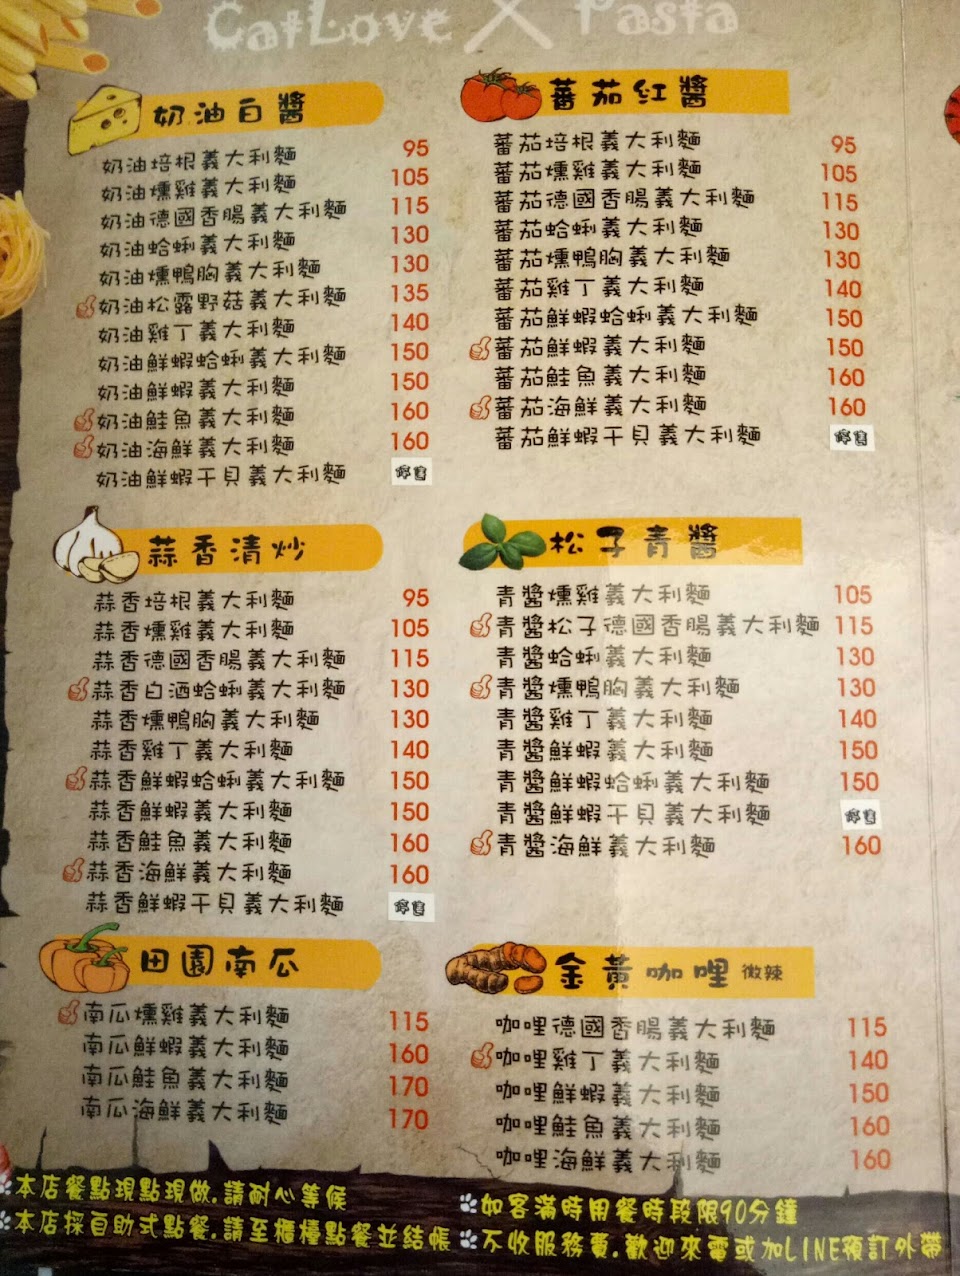 CatLove X Pasta
奶油白醬
奶油培根義大利麵 95
奶油燻雞義大利麵 105
奶油德國香腸義大利麵 115
奶油蛤蜊義大利麵 130
奶油燻鴨胸義大利麵 130
奶油松露野菇義大利麵 135
奶油雞丁義大利麵 140
奶油鮮蝦蛤蜊義大利麵 150
奶油鮮蝦義大利麵 150
奶油鮭魚義大利麵 160
奶油海鮮義大利麵 160
奶油鮮蝦干貝義大利麵 停售
蕃茄紅醬
蕃茄培根義大利麵 95
蕃茄燻雞義大利麵 105
蕃茄德國香腸義大利麵 115
蕃茄蛤蜊義大利麵 130
蕃茄燻鴨胸義大利麵 130
蕃茄雞丁義大利麵 140
蕃茄鮮蝦蛤蜊義大利麵 150
蕃茄鮮蝦義大利麵 150
蕃茄鮭魚義大利麵 160
蕃茄海鮮義大利麵 160
蕃茄鮮蝦干貝義大利麵 停售
蒜香清炒
蒜香培根義大利麵 95
蒜香燻雞義大利麵 105
蒜香德國香腸義大利麵 115
蒜香白酒蛤蜊義大利麵 130
蒜香燻鴨胸義大利麵 130
蒜香雞丁義大利麵 140
蒜香鮮蝦蛤蜊義大利麵 150
蒜香鮮蝦義大利麵 150
蒜香鮭魚義大利麵 160
蒜香海鮮義大利麵 160
蒜香鮮蝦干貝義大利麵 停售
松子青醬
青醬燻雞義大利麵 105
青醬松子德國香腸義大利麵 115
青醬蛤蜊義大利麵 130
青醬燻鴨胸義大利麵 130
青醬雞丁義大利麵 140
青醬鮮蝦義大利麵 150
青醬鮮蝦蛤蜊義大利麵 150
青醬鮮蝦干貝義大利麵 停售
青醬海鮮義大利麵 160
田園南瓜
南瓜燻雞義大利麵 115
南瓜鮮蝦義大利麵 160
南瓜鮭魚義大利麵 170
南瓜海鮮義大利麵 170
金黃咖哩 微辣
咖哩德國香腸義大利麵 115
咖哩雞丁義大利麵 140
咖哩鮮蝦義大利麵 150
咖哩鮭魚義大利麵 160
咖哩海鮮義大利麵 160
本店餐點現點現做.請耐心等候
本店採自助式點餐.請至櫃檯點餐並結帳
如客滿時用餐時段限90分鐘
不收服務費.歡迎來電或加LINE預訂外帶